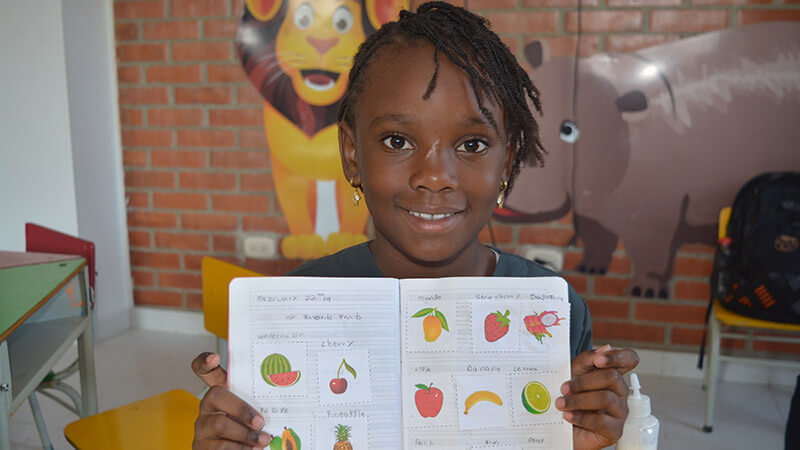 February 22nd
My Favorite Fruits
Watermelon
cherry
Papaya
Pineapple
Mango Strawberry Dragonfruit
Apple Banana Lemon
Pear